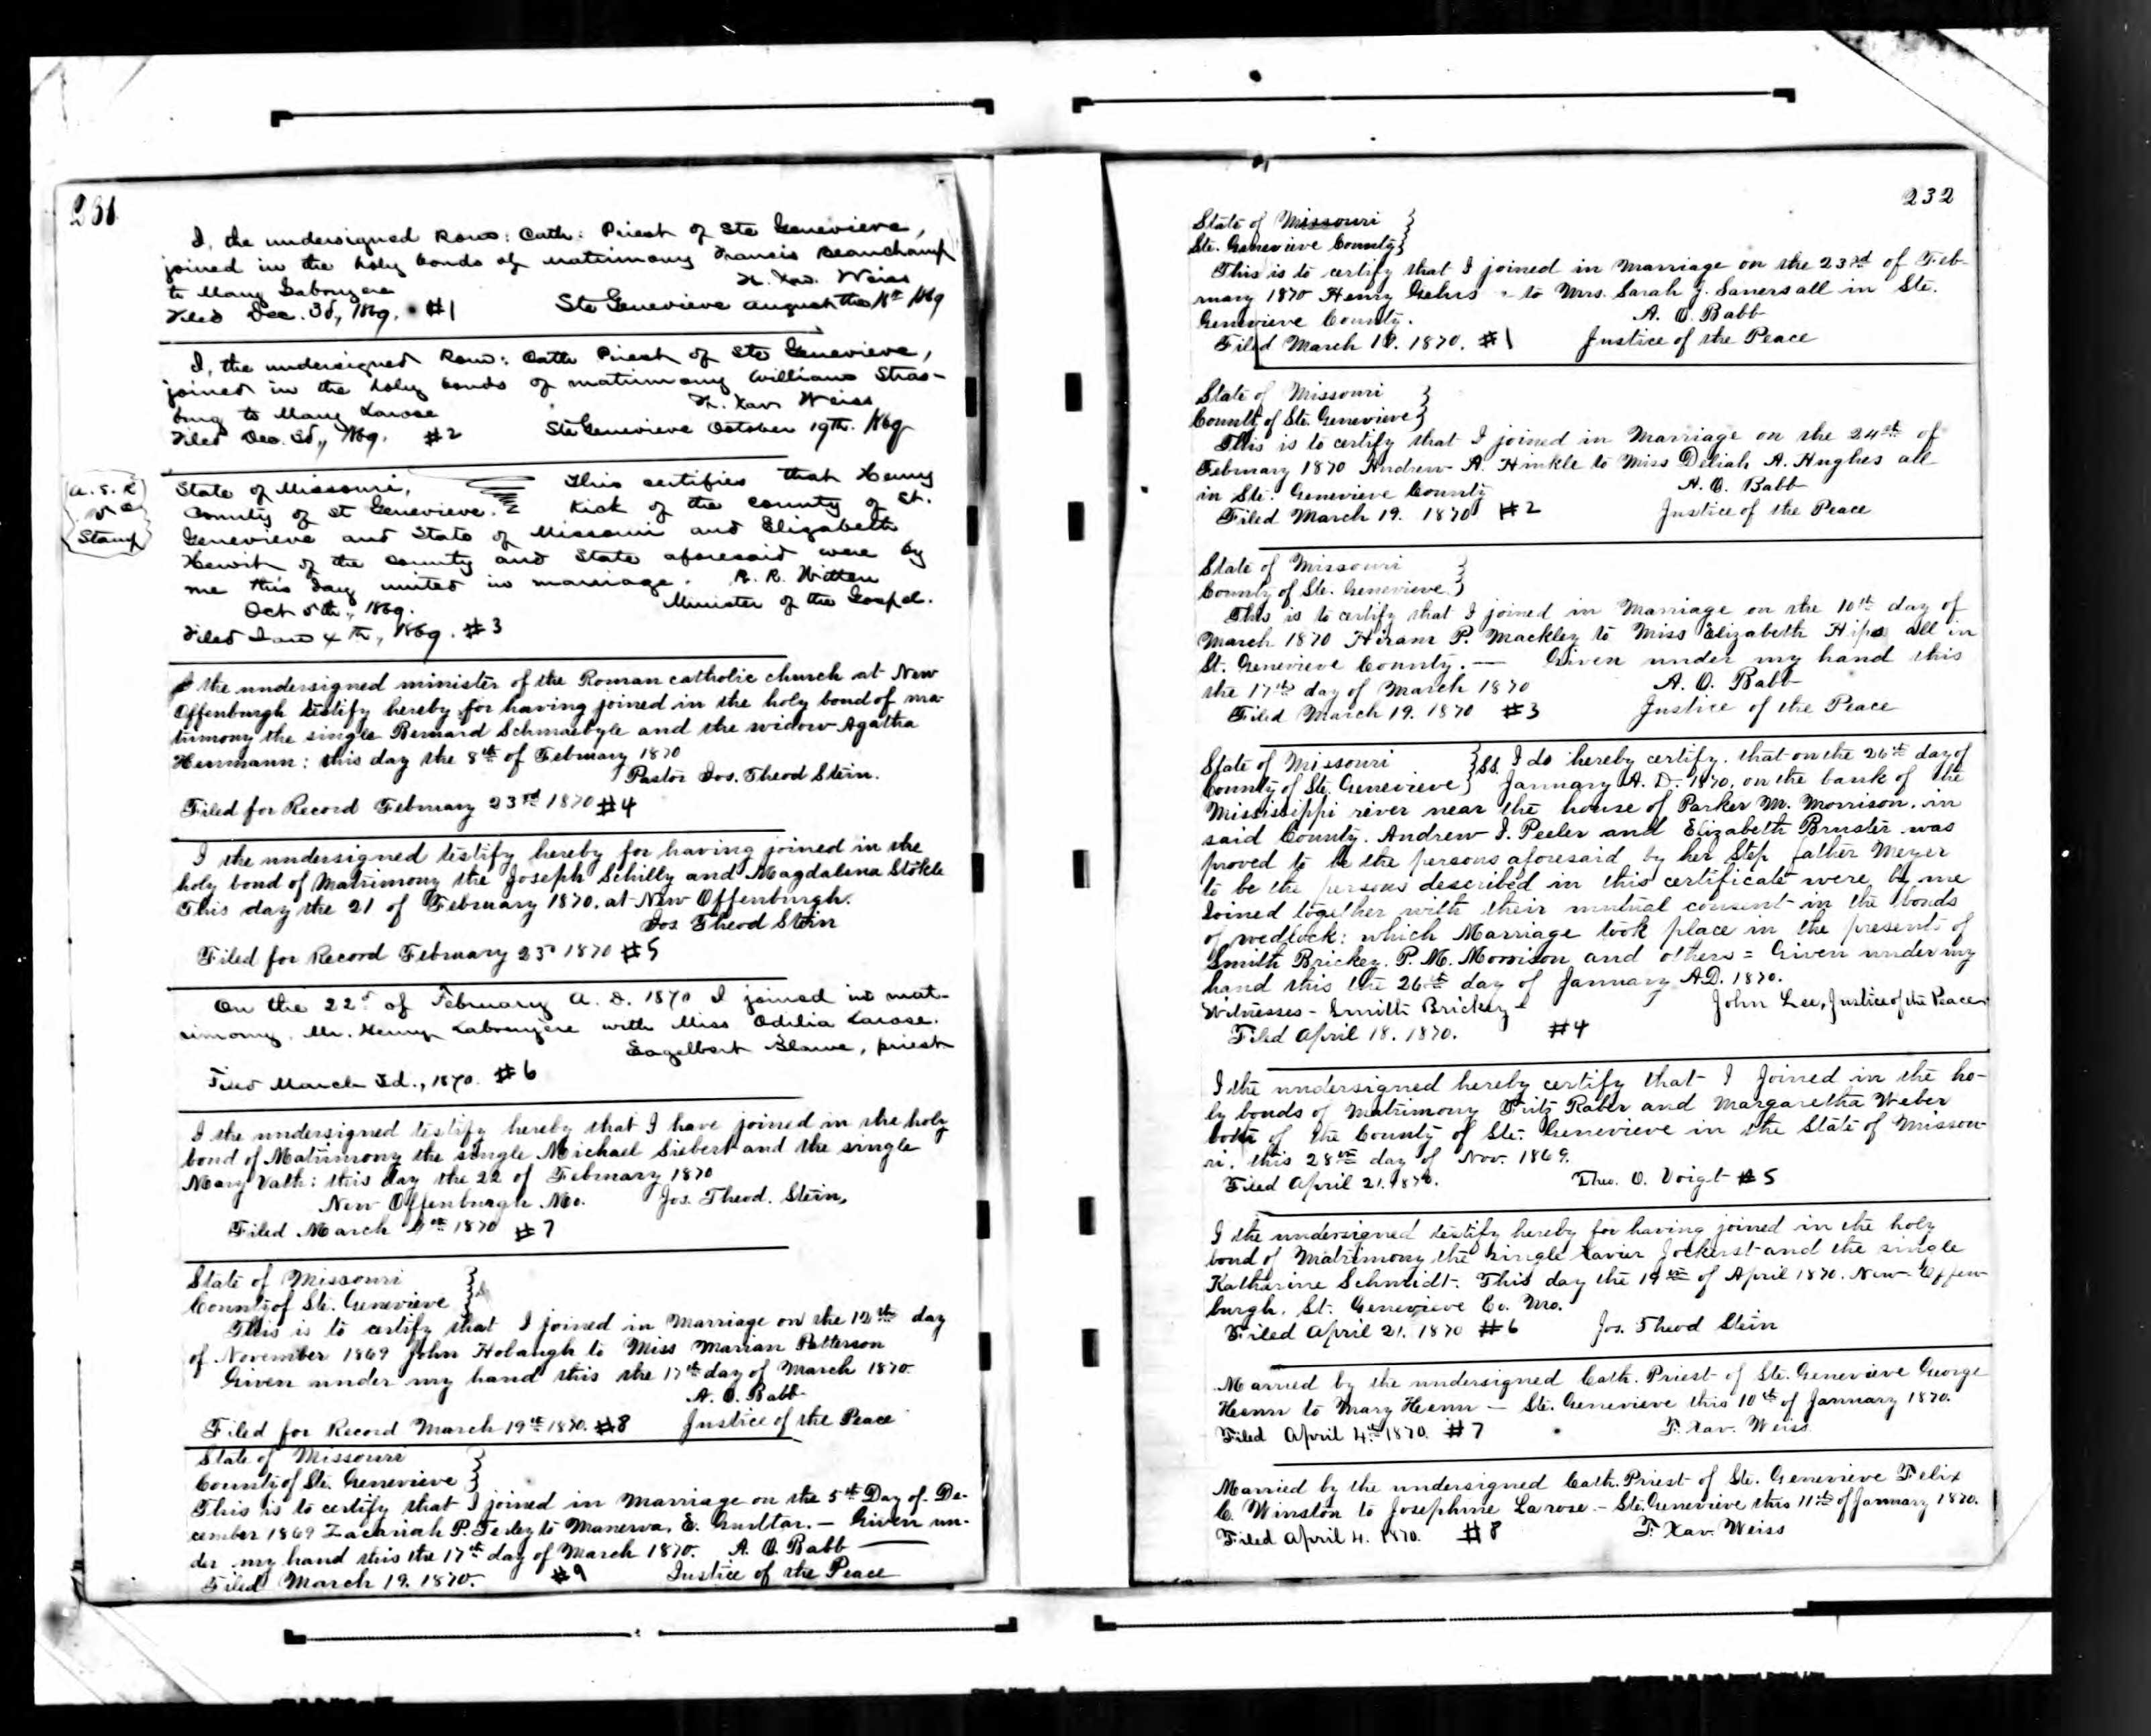 231
I, the undersigned Rom: Cath: Priest of Ste Genevieve,
joined in the holy bonds of matrimony Francis Beauchamp
to Mary Labruyere
F. Xav. Weiss
Filed Dec. 3d, 1869. #1 Ste Genevieve August the 18th 1869
I, the undersigned Rom: Cath Priest of Ste Genevieve,
joined in the holy bonds of matrimony William Stras-
burg to Mary Larose
F. Xav Weiss
Filed Dec. 3d, 1869. #2 Ste Genevieve October 19th. 1869
Stamp
State of Missouri, This certifies that Henry
County of St Genevieve. Kick of the County of St.
Genevieve and State of Missouri and Elizabeth
Hewit of the County and State aforesaid were by
me this day united in marriage. R. R. Witten
Oct 5th, 1869. Minister of the Gospel.
Filed Jan 4th, 1869. #3
I the undersigned minister of the Roman catholic church at New
Offenburgh testify hereby for having joined in the holy bond of ma-
trimony the single Bernard Schmaebyle and the widow Agatha
Hermann: this day the 8th of February 1870
Pastor Jos. Theod Stein.
Filed for Record February 23rd 1870 #4
I the undersigned testify hereby for having joined in the
holy bond of Matrimony the Joseph Schilly and Magdalena Stökle
This day the 21 of February 1870. at New Offenburgh.
Jos Theod Stein
Filed for Record February 23d 1870 #5
On the 22d of February A. D. 1870 I joined in mat-
rimony. Mr. Henry Labruyere with Miss Odilia Larose.
Engelbert , priest
Filed March 3d., 1870. #6
I the undersigned testify hereby that I have joined in the holy
bond of Matrimony the single Michael Siebert and the single
Mary Vath: this day the 22 of February 1870
New Offenburgh Mo. Jos. Theod. Stein,
Filed March 4th 1870 #7
State of Missouri
County of Ste. Genevieve
This is to certify that I joined in Marriage on the 12th day
of November 1869 John Hobaugh to Miss Marian Patterson
Given under my hand this the 17th day of March 1870.
A. O. Babb
Filed for Record March 19th 1870. #8 Justice of the Peace
State of Missouri
County of Ste. Genevieve
This is to certify that I joined in Marriage on the 5th Day of De-
cember 1869 Zacariah P. to Manerva, E. — Given un-
der my hand this the 17th day of March 1870. A. O. Babb
Filed March 19. 1870. #9 Justice of the Peace
232
State of Missouri
Ste. Genevieve County
This is to certify that I joined in Marriage on the 23rd of Feb-
ruary 1870 Henry Gehrs to Mrs. Sarah J. Sanersall in Ste.
Genevieve County.
A. O. Babb
Filed March 19. 1870. #1 Justice of the Peace
State of Missouri
County of Ste. Genevieve
This is to certify that I joined in Marriage on the 24th of
February 1870 Andrew A. Hinkle to Miss Deliah A. Hughes all
in Ste. Genevieve County
A. O. Babb
Filed March 19. 1870 #2 Justice of the Peace
State of Missouri
County of Ste. Genevieve
This is to certify that I joined in Marriage on the 10th day of
March 1870 Hiram P. Mackley to Miss Elizabeth Hips all in
St. Genevieve County. — Given under my hand this
the 17th day of March 1870 A. O. Babb
Filed March 19. 1870 #3 Justice of the Peace
State of Missouri SS. I do hereby certify. that on the 26th day of
County of Ste. Genevieve January A. D. 1870, on the bank of the
Mississippi river near the house of Parker M. Morrison. in
said County. Andrew J. Peeler and Elizabeth Bruster was
proved to be the persons aforesaid by her Step father Meyer
to be the persons described in this certificate were by me
Joined together with their mutual consent in the bonds
of wedlock: which Marriage took place in the presents of
Smith Brickey. P. M. Morrison and others = Given under my
hand this the 26th day of January A.D. 1870.
Witnesses - Smith Brickey - John Lee, Justice of the Peace
Filed April 18. 1870. #4
I the undersigned hereby certify that I Joined in the ho-
ly bonds of Matrimony Fritz Raber and Margaretha Weber
both of the County of Ste. Genevieve in the State of Missou-
ri. this 28th day of Nov. 1869.
Filed April 21. 1870. Theo. O. Voigt #5
I the undersigned testify hereby for having joined in the holy
bond of Matrimony the single Xavier Jokerst and the single
Katharine Schmidt. This day the 19th of April 1870. New Offen-
burgh. St. Genevieve Co. Mo.
Filed April 21. 1870 #6 Jos. Theod Stein
Married by the undersigned Cath. Priest of Ste. Genevieve George
Henn to Mary Henn — Ste. Genevieve this 10th of January 1870.
Filed April 4th 1870. #7 F. Xav. Weiss
Married by the undersigned Cath. Priest of Ste. Genevieve Felix
C. Winston to Josephine Larose. - Ste. Genevieve this 11th of January 1870.
Filed April 4. 1870. #8 F. Xav. Weiss